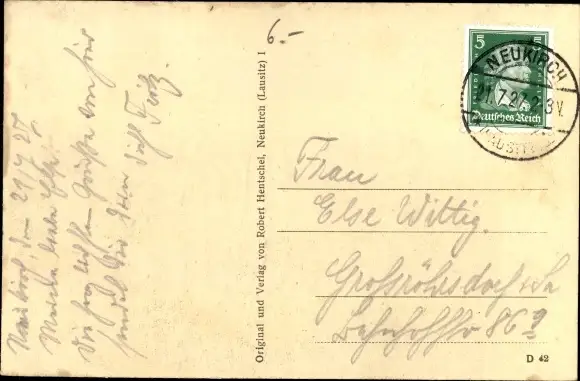 6.-
5
NEUKIRCH
21.7.27. 2-3 V.
(LAUSITZ)
Deutsches Reich
Frau
Else Wittig.
Großröhrsdorf i. Sa
Bahnhofstr 86 a
D 42
Original und Verlag von Robert Hentschel, Neukirch (Lausitz) I
Neukirch, d. 21/7 27.
Meine liebe Else
Die herzlichsten Grüße von hier
sendet Dir Dein Fritz.